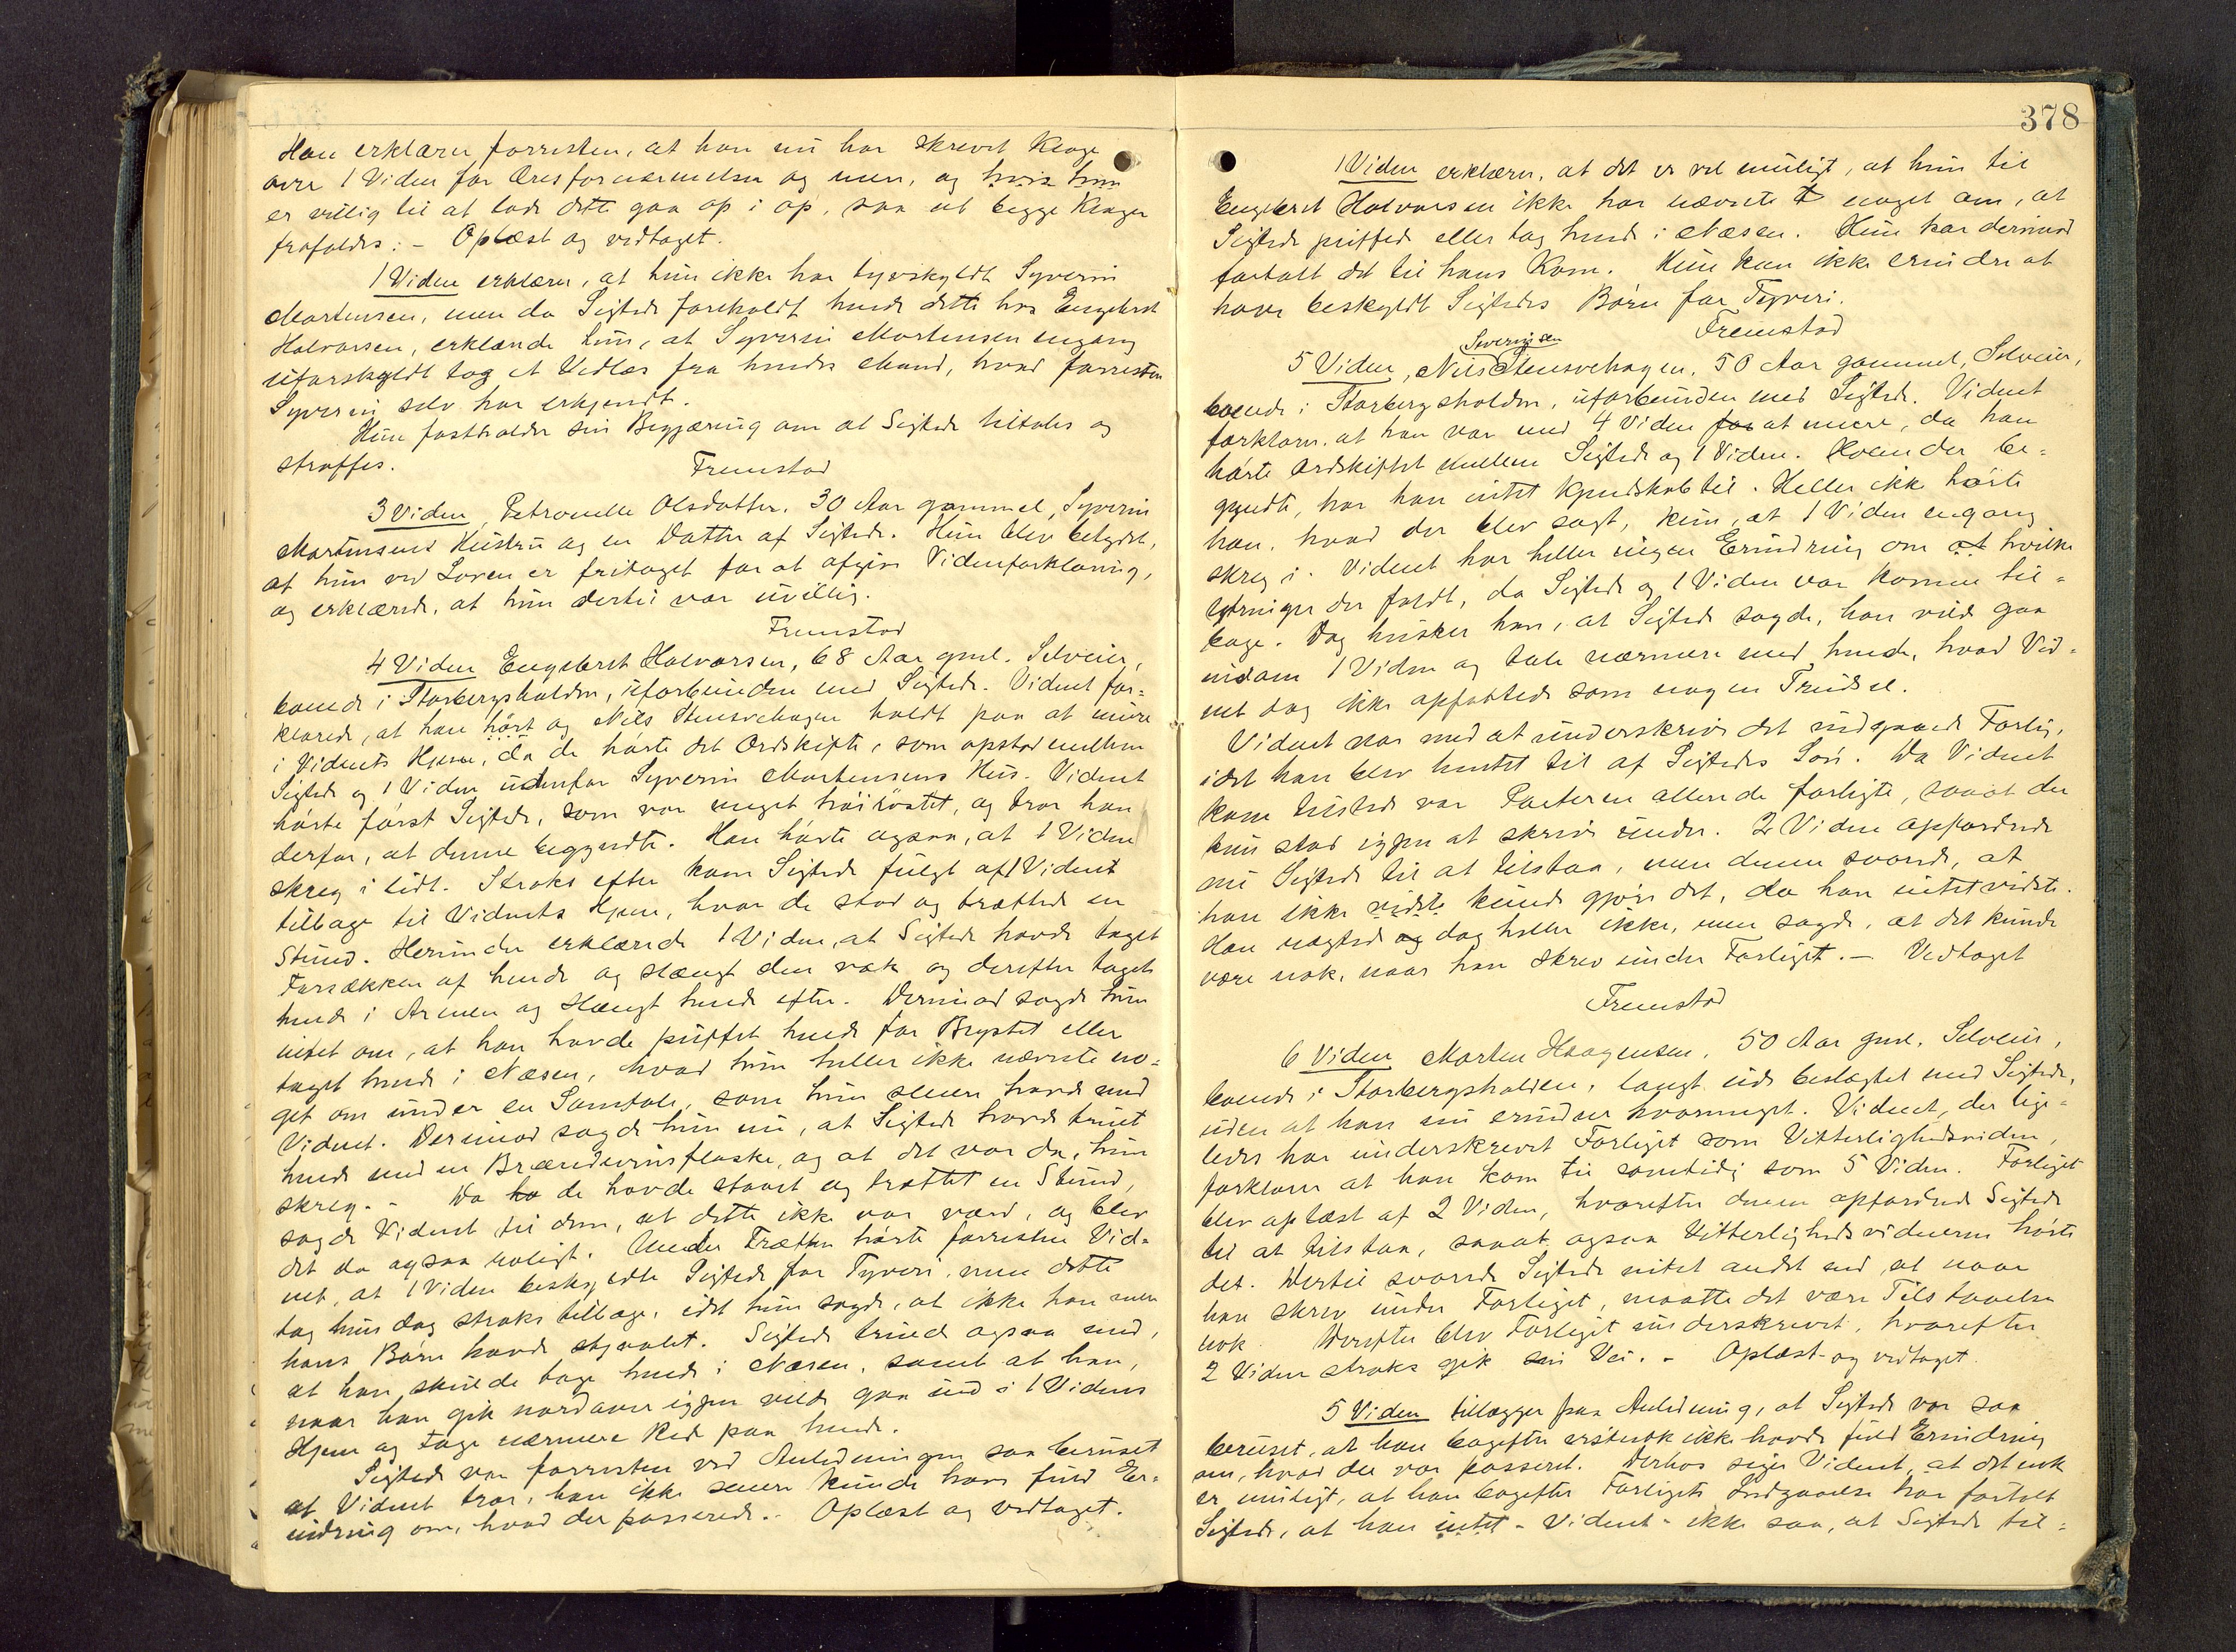 Han erklærer forresten, at han nu har skrevet Klage
over 1 Vidne for Æresfornærmelse og mere, og hvis hun
er villig til at lade dette gaa op i op, saa at begge Klager
frafaldes. - Oplæst og vedtaget.
1 Vidne erklærer, at hun ikke har tyvskyldt Syverin
Mortensen, men da Sigtede foreholdt hende dette hos Engebret
Halvorsen, erklærede hun, at Syverin Mortensen engang
uforskyldt tog et Vedlæs fra hendes Mand, hvad forresten
Syverin selv har erkjendt.
Hun fastholder sin Begjæring om at Sigtede tiltales og
straffes.
Fremstod
3 Vidne, Petronelle Olsdatter, 30 Aar gammel, Syverin
Mortensens Hustru og en Datter af Sigtede. Hun blev betydet,
at hun ved Loven er fritaget for at afgive Vidneforklaring,
og erklærede, at hun dertil var uvillig.
Fremstod
4 Vidne Engebret Halvorsen, 68 Aar gml. Selveier,
boende i Storbergsholden, uforbunden med Sigtede. Vidnet for-
klarede, at han hørt og Nils Stensvehagen holdt paa at mure
i Vidnets Hjem, da de hørte det Ordskifte, som opstod mellem
Sigtede og 1 Vidne udenfor Syverin Mortensens Hus. Vidnet
hørte først Sigtede, som var meget høirøstet, og tror han
derfor, at denne begyndte. Han hørte ogsaa, at 1 Vidne
skreg i lidt. Straks efter kom Sigtede fulgt af 1 Vidnet
tilbage til Vidnets Hjem, hvor de stod og trættede en
Stund. Herunder erklærede 1 Vidne, at Sigtede havde taget
Tursækken af hende og slængt den væk og derefter taget
hende i Armen og slængt hende efter. Derimod sagde hun
intet om, at han havde puffet hende for Brystet eller
taget hende i Næsen, hvad hun heller ikke nævnte no-
get om under en Samtale, som hun senere havde med
Vidnet. Derimod sagde hun nu, at Sigtede havde truet
hende med en Brændevinsflaske, og at det var da, hun
skreg. - Da ha de havde staaet og trættet en Stund,
sagde Vidnet til dem, at dette ikke var værd, og blev
det da ogsaa roligt. Under Trætten hørte forresten Vid-
net, at 1 Vidne beskyldte Sigtede for Tyveri, men dette
tog hun dog straks tilbage, idet hun sagde, at ikke han men
hans Børn havde stjaalet. Sigtede truede ogsaa med,
at han skulde tage hende i Næsen, samt at han,
naar han gik nordover igjen vilde gaa ind i 1 Vidnes
Hjem og tage nærmere Rede paa hende.
Sigtede var forresten ved Anledningen saa beruset
at Vidnet tror, han ikke senere kunde have fuld Er-
indring om, hvad der passerede. - Oplæst og vedtaget.
378
1 Vidne erklærer, at det er vel muligt, at hun til
Engebret Halvorsen ikke har nævnte noget om, at
Sigtede puffede eller tog hende i Næsen. Hun har derimod
fortalt det til hans Kone. Hun kan ikke erindre at
have beskyldt Sigtedes Børn for Tyveri.
Fremstod
Severinsen
5 Vidne, Nils Stensvehagen, 50 Aar gammel, Selveier,
boende i Storbergsholden, uforbunden med Sigtede. Vidnet
forklarer, at han var med 4 Vidne for at mure, da han
hørte Ordskiftet mellem Sigtede og 1 Vidne. Hvem der be-
gyndte, har han intet Kjendskab til. Heller ikke hørte
han, hvad der blev sagt, kun, at 1 Vidne engang
skreg i. Vidnet har heller ingen Erindring om at hvilke
Ytringer der faldt, da Sigtede og 1 Vidne var kommet til-
bage. Dog husker han, at Sigtede sagde, han vilde gaa
indom 1 Vidne og tale nærmere med hende, hvad Vid-
net dog ikke opfattede som nogen Trudsel.
Vidnet var med at underskrive det indgaaede Forlig,
idet han blev hentet til af Sigtedes Søn. Da Vidnet
kom tilstede var Parterne allerede forligte, saaat der
kun stod igjen at skrive under. 2 Vidne opfordrede
nu Sigtede til at tilstaa, men denne svarede, at
han ikke vidste kunde gjøre det, da han intet vidste.
Han nægtede og dog heller ikke, men sagde, at det kunde
være nok, naar han skrev under Forliget. - Vedtaget
Fremstod
6 Vidne Morten Haagensen, 50 Aar gml. Selveier,
boende i Storbergsholden, langt ude beslægtet med Sigtede,
uden at han nu erindrer hvormeget. Vidnet, der lige-
ledes har underskrevet Forliget som Vitterlighedsvidne,
forklarer at han kom til samtidig som 5 Vidne. Forliget
blev oplæst af 2 Vidne, hvorefter denne opfordrede Sigtede
til at tilstaa, saaat ogsaa Vitterlighedsvidnerne hørte
det. Dertil svarede Sigtede intet andet end, at naar
han skrev under Forliget, maatte det være Tilstaaelse
nok. Derefter blev Forliget underskrevet, hvorefter
2 Vidne straks gik sin Vei. - Oplæst og vedtaget.
5 Vidne tillægger paa Anledning, at Sigtede var saa
beruset, at han bagefter vistnok ikke havde fuld Erindring
om, hvad der var passeret. Derhos siger Vidnet, at det nok
er muligt, at han bagefter Forligets Indgaaelse har fortalt
Sigtede, at han intet - Vidnet - ikke saa, at Sigtede til-